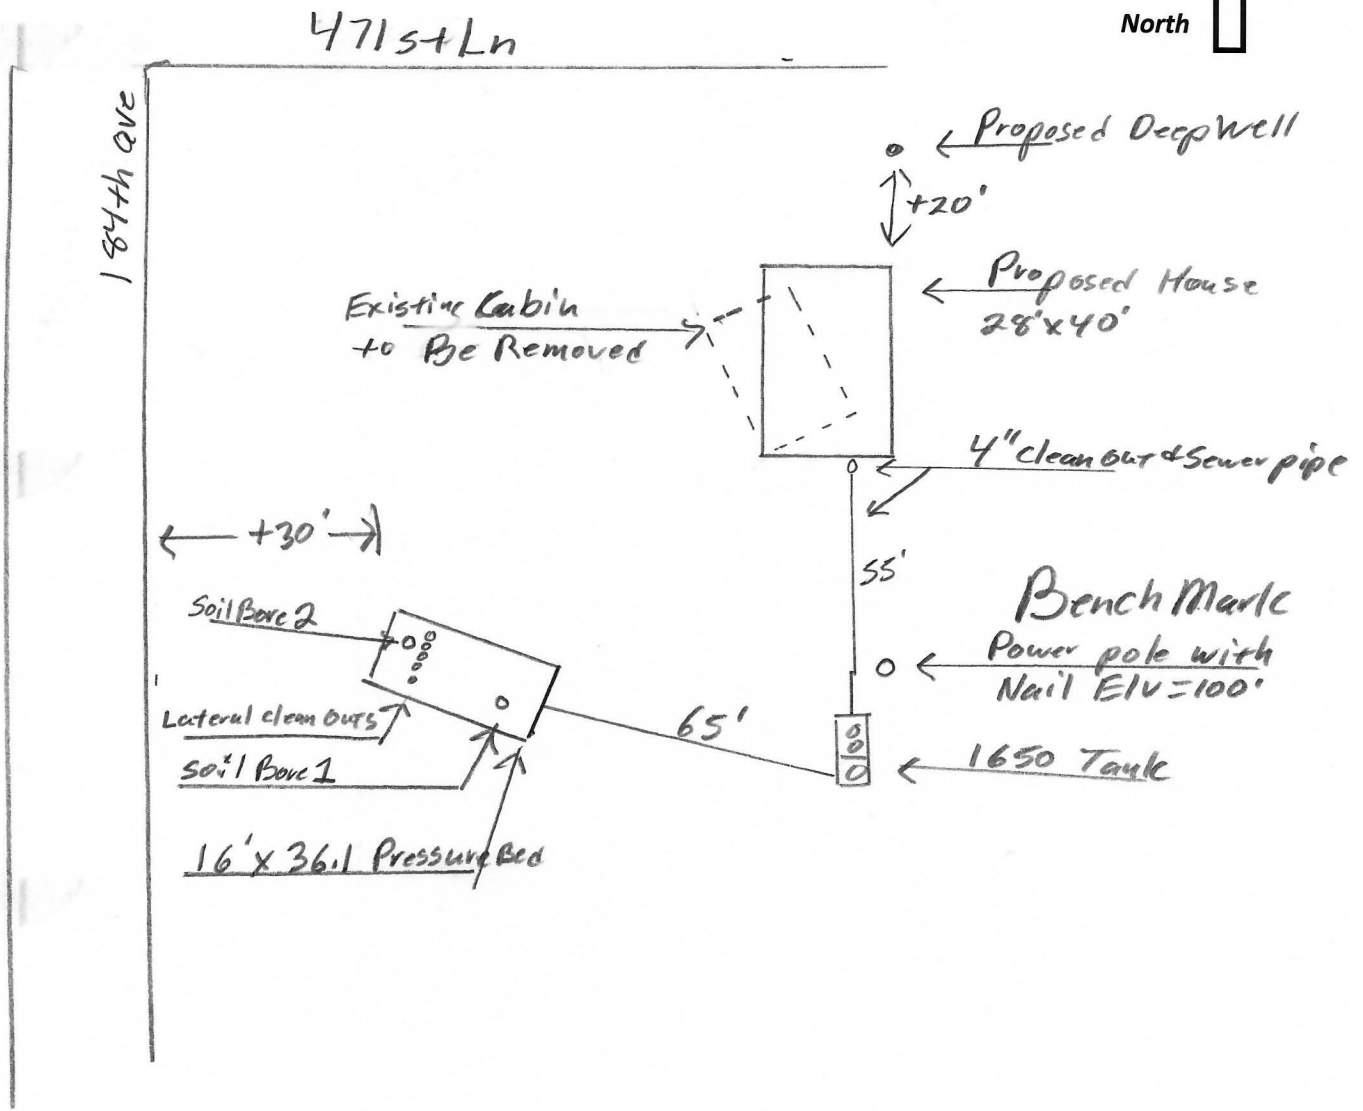 471st Ln
North
184th ave
Proposed Deep Well
+20'
Proposed House
28'x40'
Existing Cabin
to Be Removed
4" clean out & Sewer pipe
+30'
55'
Soil Bore 2
Bench Mark
Power pole with
Nail Elv=100'
Lateral clean outs
65'
1650 Tank
soil Bore 1
16'x 36.1 Pressure Bed